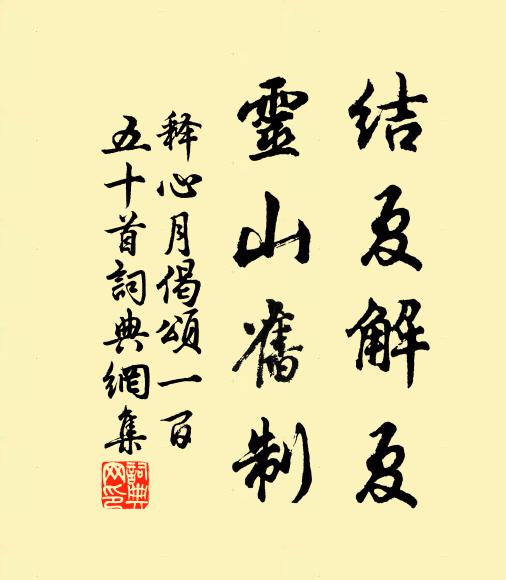 结夏解夏
靈山舊制
释心月偈頌一百
五十首詞典網集
詞典網印